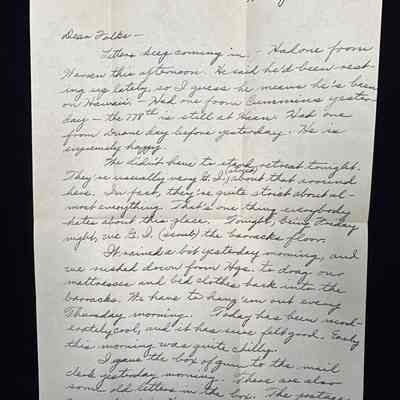 Dear Folks –
Letters keep coming in. – Had one from
Warren this afternoon. He said he'd been rest-
ing up lately, so I guess he means he's been
on Hawaii. Had one from Cummins yester-
day – the 778th is still at Hearn. Had one
from Duane day before yesterday. He is
supremely happy.
We didn't have to stand retreat tonight.
They're usually very G.I. (strict) about that around
here. In fact, they're quite strict about al-
most everything. That's one thing everybody
hates about this place. Tonight, being Friday
night, we G.I. (scrub) the barracks floor.
It rained a bit yesterday morning, and
we rushed down from Hqs. to drag our
mattresses and bed clothes back into the
barracks. We have to hang 'em out every
Thursday morning. Today has been mod-
erately cool, and it has sure felt good. Early
this morning was quite chilly.
I gave the box of gum to the mail
clerk yesterday morning. There are also
some old letters in the box. The postage